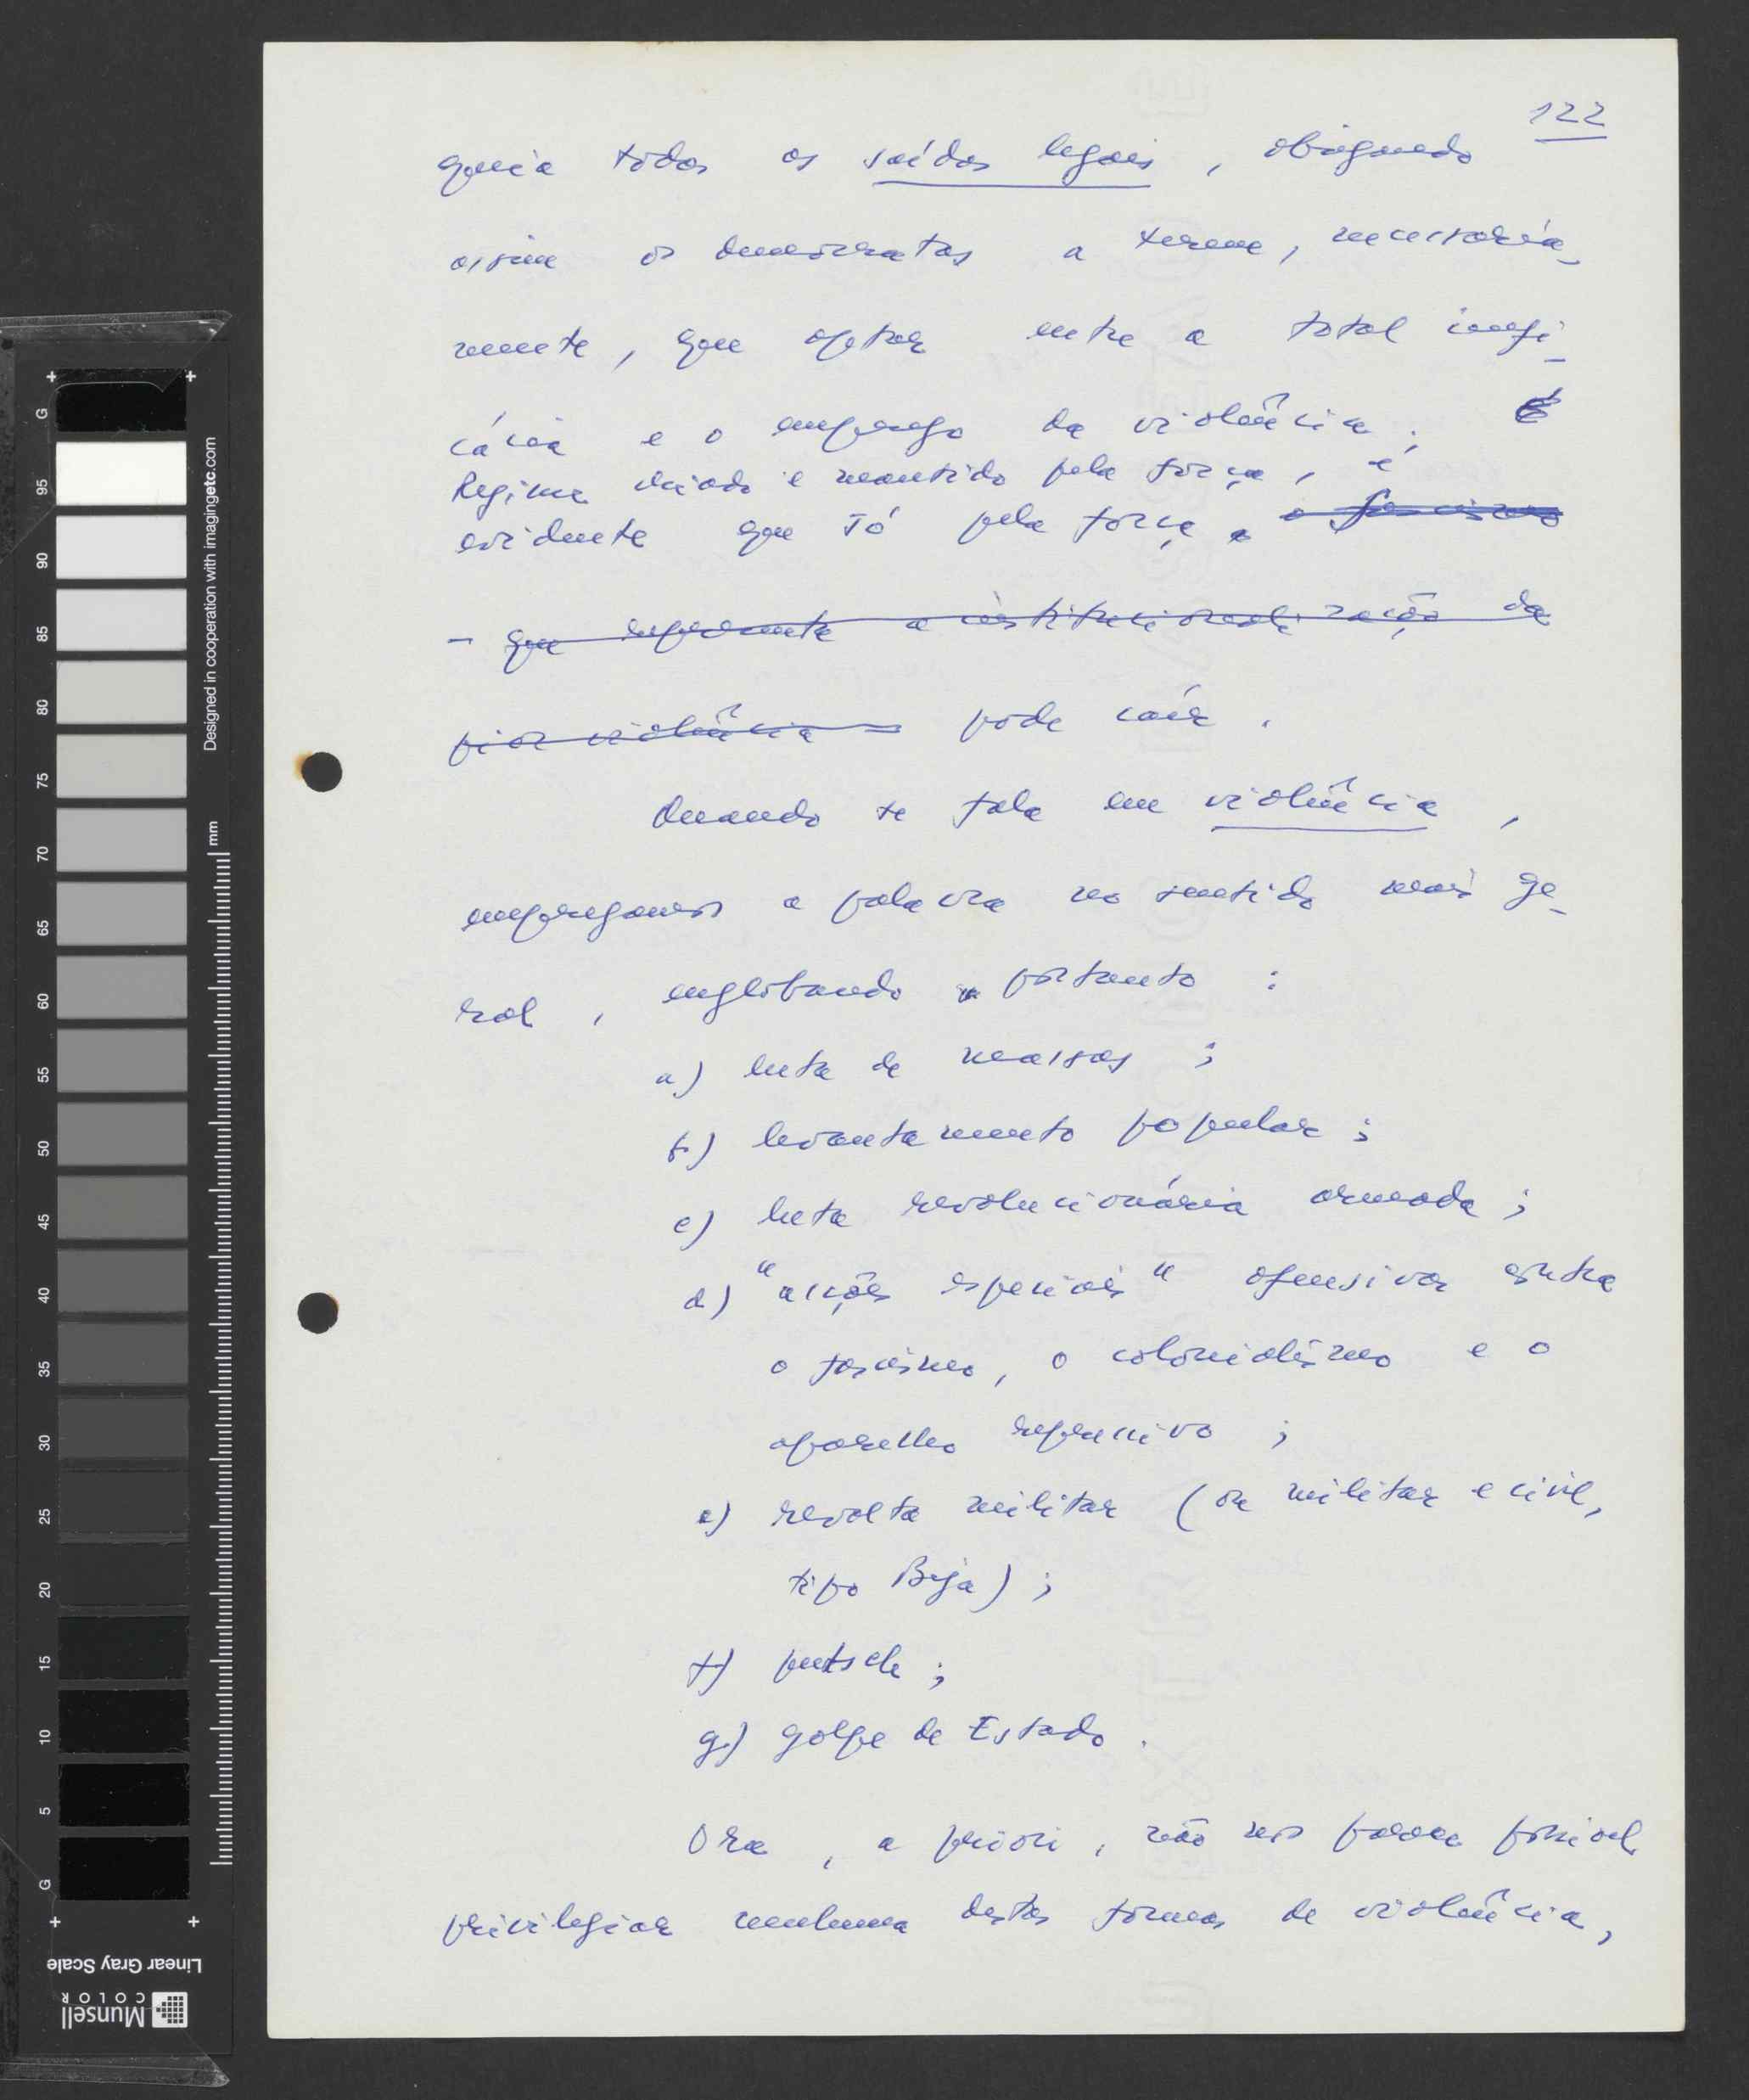 122
queia todas as saídas legais, obrigando
assim os democratas a terem, necessària_
mente, que optar entre a total inefi_
cácia e o emprego da violência. É
Regime criado e mantido pela força, é
evidente que só pela força o fascismo
- que representa a institucionalização da
pior violência - pode caír.
Quando se fala em violência,
empregamos a palavra no sentido mais ge_
ral, englobando portanto:
a) luta de massas;
b) levantamento popular;
c) luta revolucionária armada;
d) "acções especiais" ofensivas contra
o fascismo, o colonialismo e o
aparelho repressivo;
e) revolta militar (ou militar e civil,
tipo Beja);
f) putsch;
g) golpe de Estado.
Ora, a priori, não nos parece possível
privilegiar nenhuma destas formas de violência,
G
95
90
85
80
75
70
65
60
55
50
45
40
35
30
25
20
15
10
5
G
mm
Designed in cooperation with imagingetc.com
Linear Gray Scale
Munsell
COLOR